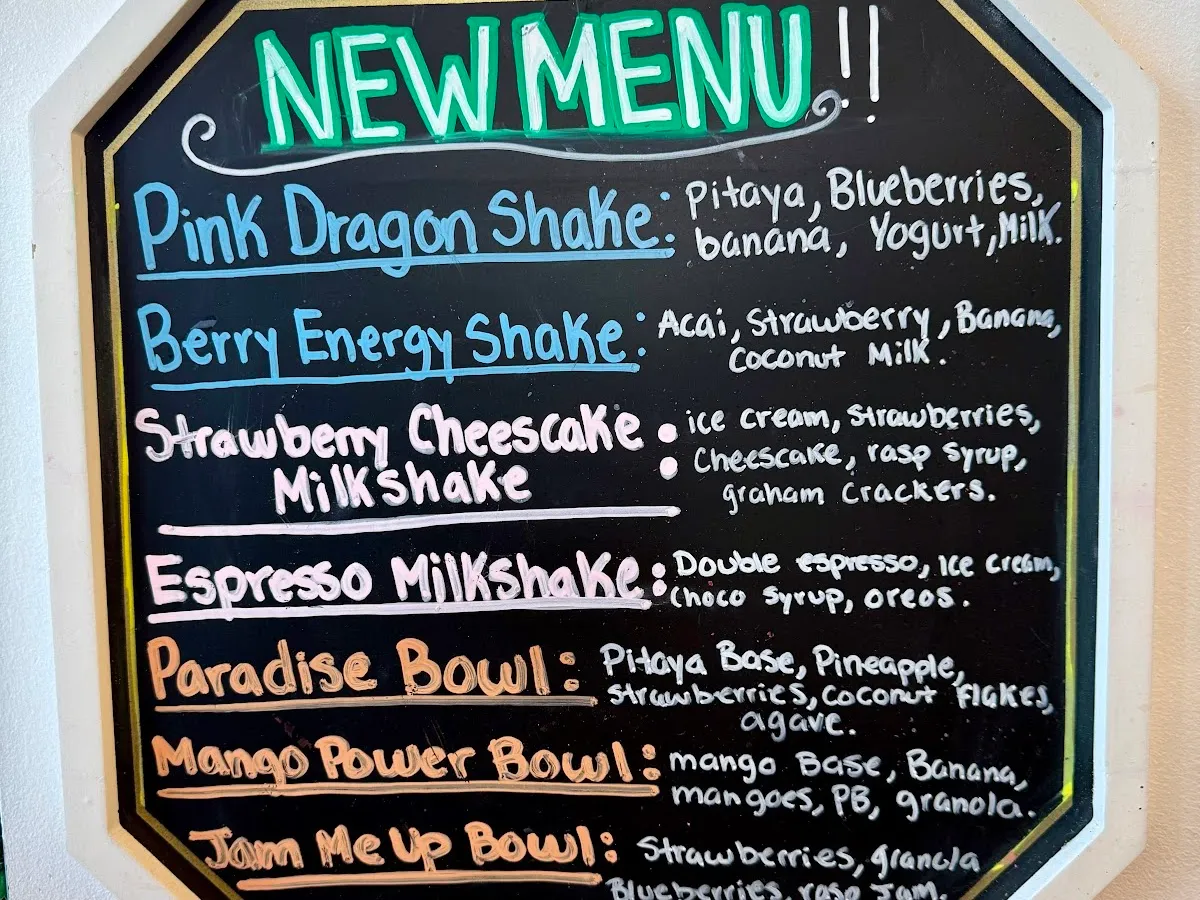 NEW MENU!!
Pink Dragon Shake: Pitaya, Blueberries,
banana, Yogurt, Milk.
Berry Energy Shake: Acai, Strawberry, Banana,
Coconut Milk.
Strawberry Cheescake
Milkshake : ice cream, strawberries,
Cheescake, rasp syrup,
graham crackers.
Espresso Milkshake: Double espresso, ice cream,
choco syrup, oreos.
Paradise Bowl: Pitaya Base, Pineapple,
strawberries, coconut flakes,
agave.
Mango Power Bowl: mango Base, Banana,
mangoes, PB, granola.
Jam Me Up Bowl: Strawberries, granola
Blueberries, rasp Jam.